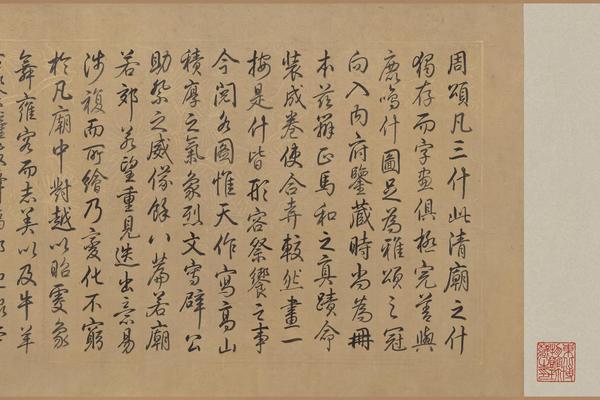 周頌凡三什此清廟之什
獨存而字畫俱極完善與
鹿鳴什圖足為雅頌之冠
向入內府鑒藏時尚為冊
本茲辨正馬和之真蹟命
裝成卷使合弆較然畫一
按是什皆形容祭饗之事
今閱各圖惟天作寫高山
積厚之氣象烈文寫辟公
助祭之威儀餘八篇若廟
若郊若望重見迭出意易
涉複而所繪乃變化不窮
於凡廟中對越以昭雯象
舞雍容而志美以及牛羊